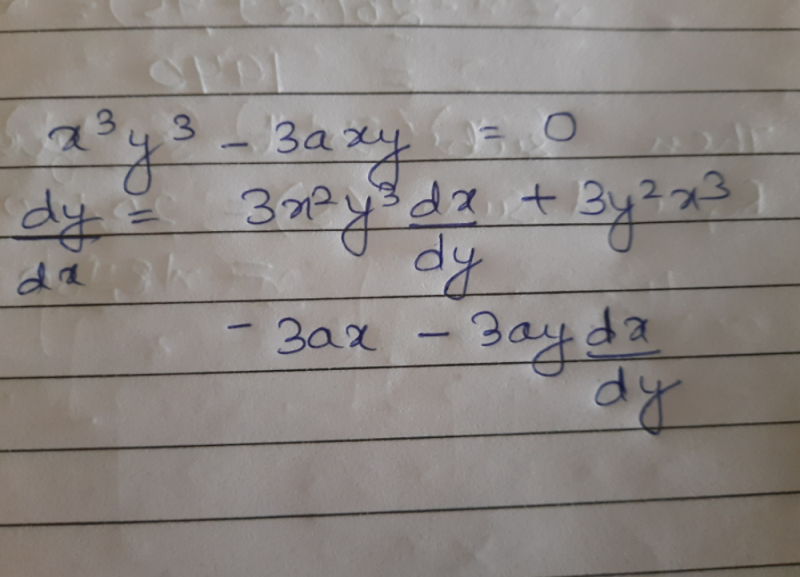 x³y³ - 3axy = 0
dy/dx = 3x²y³ dx/dy + 3y²x³
- 3ax - 3ay dx/dy